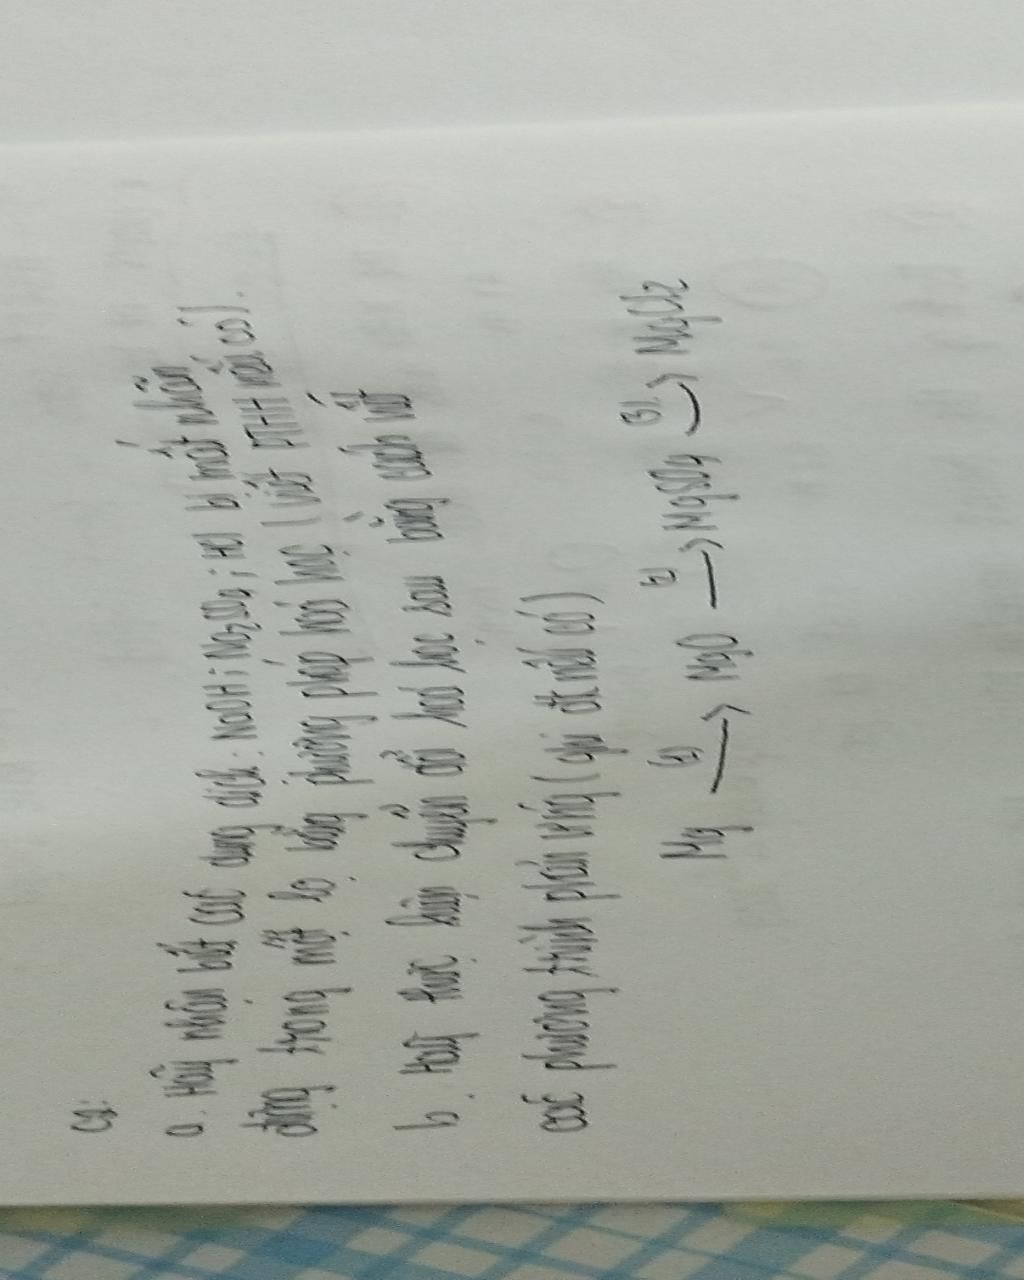 C3:
a. Hãy nhận biết các dung dịch: NaOH; Na2CO3; HCl bị mất nhãn
đựng trong mỗi lọ bằng phương pháp hóa học (viết PTHH nếu có).
b. Hãy thực hiện chuyển đổi hoá học sau bằng cách viết
các phương trình phản ứng (ghi đk nếu có)
Mg (1)→ MgO (2)→ MgSO4 (3)→ MgCl2